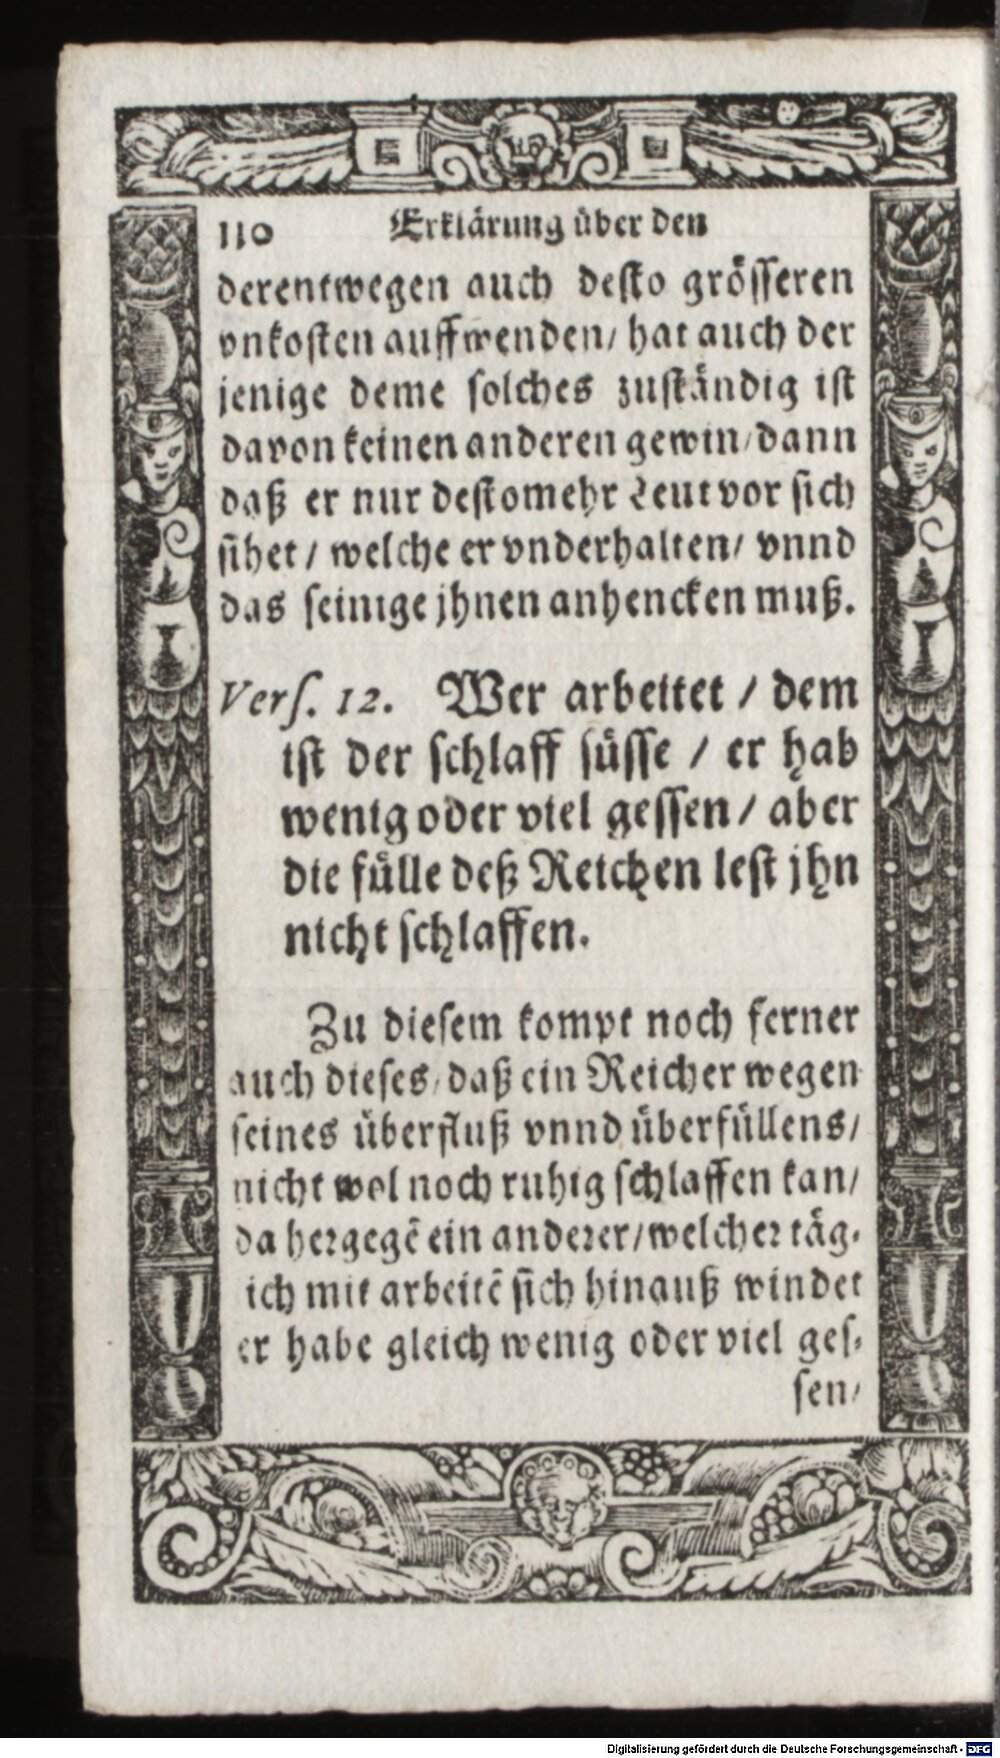 110 Erklärung über den
derentwegen auch desto grösseren
vnkosten auffwenden/ hat auch der
jenige deme solches zuständig ist
davon keinen anderen gewin/ dann
daß er nur destomehr Leut vor sich
sihet / welche er vnderhalten/ vnnd
das seinige jhnen anhencken muß.
Vers. 12. Wer arbeitet / dem
ist der schlaff süsse / er hab
wenig oder viel gessen / aber
die fülle deß Reichen lest jhn
nicht schlaffen.
Zu diesem kompt noch ferner
auch dieses/ daß ein Reicher wegen
seines überfluß vnnd überfüllens/
nicht wol noch ruhig schlaffen kan/
da hergegē ein anderer/ welcher täg-
ich mit arbeitē sich hinauß windet
er habe gleich wenig oder viel ges-
sen/
Digitalisierung gefördert durch die Deutsche Forschungsgemeinschaft - DFG